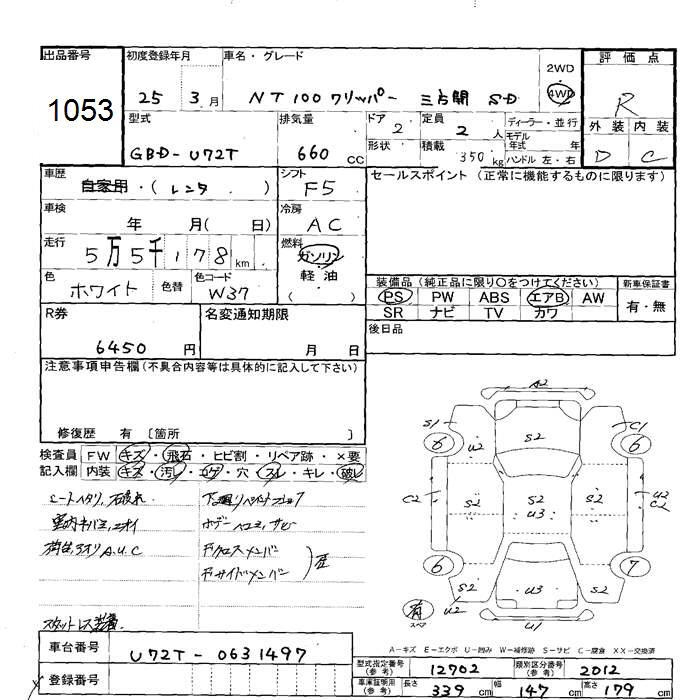 出品番号 初度登録年月 車名・グレード 評価点
1053 25年 3月 NT100クリッパー 三方開 SD 2WD 4WD R
型式 排気量 ドア 定員 ディーラー・並行
GBD-U72T 660 CC 2 2人 モデル年式 年 外装 内装
形状 積載 350kg ハンドル 左・右 D C
車歴 シフト セールスポイント (正常に機能するものに限ります)
自家用・(レンタ) F5
車検 冷房
年 月( 日) AC
走行 燃料
5万5千178km ガソリン
軽油
( )
色 色替 色コード
ホワイト W37
装備品 (純正品に限り○をつけてください) 新車保証書
PS PW ABS エアB AW 有・無
SR ナビ TV カワ
R券 名変通知期限 後日品
6450円 月 日
注意事項申告欄(不具合内容等は具体的に記入して下さい)
修復歴 有 〔箇所 〕
検査員 FW キズ・飛石・ヒビ割・リペア跡・×要
記入欄 内装 キズ・汚レ・コゲ・穴・スレ・キレ・破レ
シートヘタリ,
室内キバミ,ニオイ
荷台,アオリA.U.C
ボデーヘコミ,サビ
Fクロスメンバー
Fサイドメンバー
スタットレス装着.
A2
S1 C1
6 U2 S2 6
C2 S2 S2 U3 S2 U2 C2
6 7
S2 U3 S2
有 スペア U2 U1
A-キズ E-エクボ U-凹み W-補修跡 S-サビ C-腐食 XX-交換済
車台番号 U72T-0631497
登録番号
型式指定番号(参考) 12702 類別区分番号(参考) 2012
車庫証明用(参考) 長さ 339cm 幅 147cm 高さ 179cm